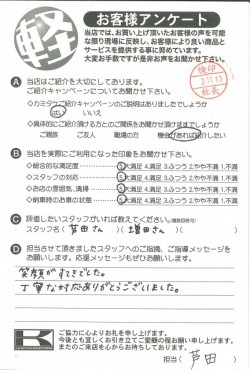 軽
お客様アンケート
当店では、お買い上げ頂いたお客様の声を可能
な限り現場に反映し、お客様により良い商品と
サービスを提供する事に努めています。
大変お手数ですが是非お声をお聞かせ下さい。
検印
2.11.13
社長
A 当店はご紹介を大切にしております。
ご紹介キャンペーンについてお聞かせ下さい。
◇カミタケでご紹介キャンペーンのご説明はありましたでしょうか
はい いいえ
◇具体的にご紹介頂ける方とのご関係をお聞かせ頂けますでしょうか
ご親族 ご友人 職場の方 機会があれば紹介したい
B 当店を実際にご利用になった印象をお聞かせ下さい。
◇総合的な満足度 5.大満足 4.満足 3.ふつう 2.やや不満 1.不満
◇スタッフの対応 5.大満足 4.満足 3.ふつう 2.やや不満 1.不満
◇お店の雰囲気、清掃 5.大満足 4.満足 3.ふつう 2.やや不満 1.不満
◇納車時のお車の状態 5.大満足 4.満足 3.ふつう 2.やや不満 1.不満
C 評価したいスタッフがいれば教えてください。(複数回答可)
スタッフ名( 芦田さん )( 増田さん )
D 担当させて頂きましたスタッフへのご指摘、ご指導メッセージを
お願いします。応援メッセージもぜひお願いします。
笑顔がすてきでした。
丁寧な対応ありがとうございました。
K
ご協力に心よりお礼を申し上げます。
今後とも宜しくお引き立てご愛顧の程お願い申し上げます。
またのご来店を心からお待ちしております。
担当( 芦田 )